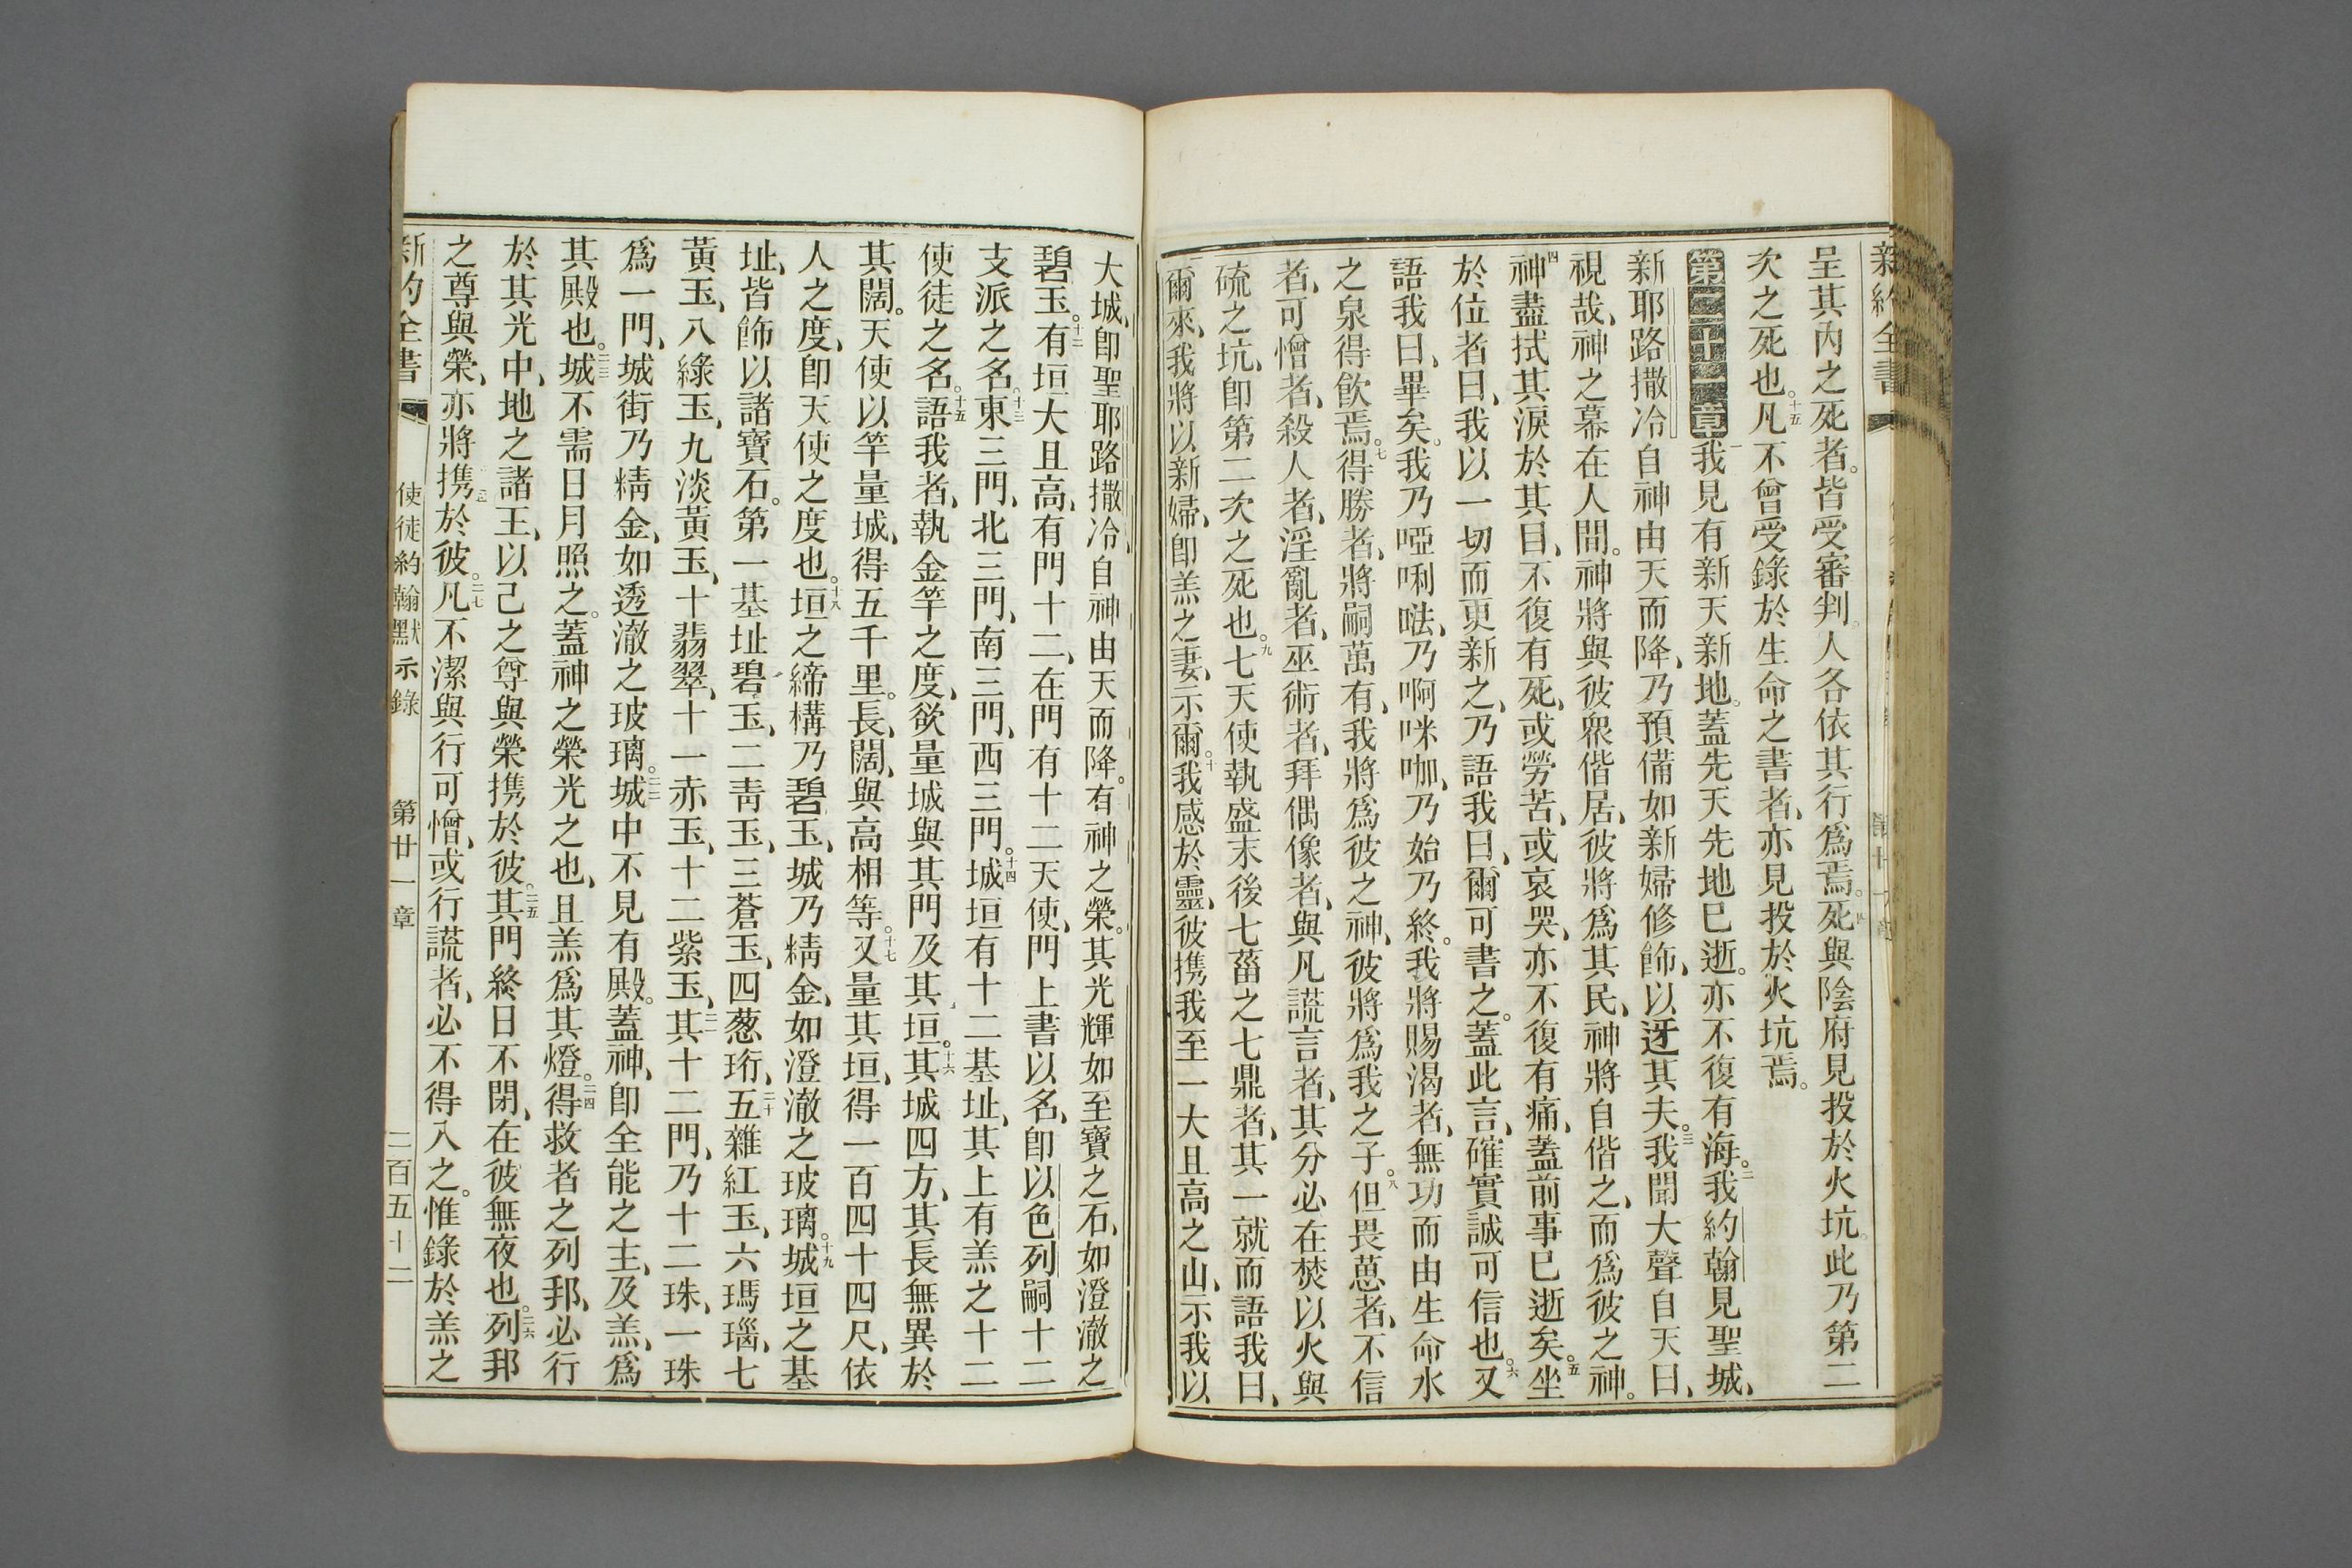 新約全書
呈其內之死者。皆受審判。人各依其行爲焉。死與陰府見投於火坑。此乃第二
次之死也。十五凡不曾受錄於生命之書者、亦見投於火坑焉。
第二十一章一我見有新天新地。蓋先天先地已逝。亦不復有海。二我約翰見聖城、
新耶路撒冷自神由天而降、乃預備如新婦修飾、以迓其夫。三我聞大聲自天曰、
視哉、神之幕在人間。神將與彼衆偕居、彼將爲其民、神將自偕之、而爲彼之神。
四神盡拭其淚於其目、不復有死、或勞苦、或哀哭、亦不復有痛、蓋前事已逝矣。五坐
於位者曰、我以一切而更新之、乃語我曰、爾可書之。蓋此言、確實誠可信也。六又
語我曰、畢矣。我乃啞唎㖠、乃啊咪咖、乃始乃終。我將賜渴者、無功而由生命水
之泉得飲焉。七得勝者、將嗣萬有、我將爲彼之神、彼將爲我之子。八但畏葸者、不信
者、可憎者、殺人者、淫亂者、巫術者、拜偶像者、與凡謊言者、其分必在焚以火與
硫之坑、卽第二次之死也。九七天使執盛末後七菑之七鼎者、其一就而語我曰、
爾來、我將以新婦、卽羔之妻、示爾。十我感於靈、彼携我至一大且高之山、示我以
大城、卽聖耶路撒冷、自神由天而降。有神之榮。其光輝如至寶之石、如澄澈之
碧玉。十二有垣大且高、有門十二、在門有十二天使、門上書以名、卽以色列嗣十二
支派之名。十三東三門、北三門、南三門、西三門。十四城垣有十二基址、其上有羔之十二
使徒之名。十五語我者、執金竿之度、欲量城與其門及其垣。十六其城四方、其長無異於
其闊。天使以竿量城、得五千里。長、闊、與高相等。十七又量其垣、得一百四十四尺、依
人之度、卽天使之度也。十八垣之締構乃碧玉、城乃精金、如澄澈之玻璃。十九城垣之基
址、皆飾以諸寶石。第一基址碧玉、二靑玉、三蒼玉、四葱珩、二十五雜紅玉、六瑪瑙、七
黃玉、八綠玉、九淡黃玉、十翡翠、十一赤玉、十二紫玉、二一其十二門、乃十二珠、一珠
爲一門、城街乃精金、如透澈之玻璃。二二城中不見有殿。蓋神、卽全能之主、及羔、爲
其殿也。二三城不需日月照之。蓋神之榮光之也、且羔爲其燈。二四得救者之列邦、必行
於其光中、地之諸王、以己之尊與榮携於彼。二五其門終日不閉、在彼無夜也。二六列邦
之尊與榮、亦將携於彼。二七凡不潔與行可憎、或行謊者、必不得入之。惟錄於羔之
新約全書 使徒約翰默示錄 第廿一章 二百五十二